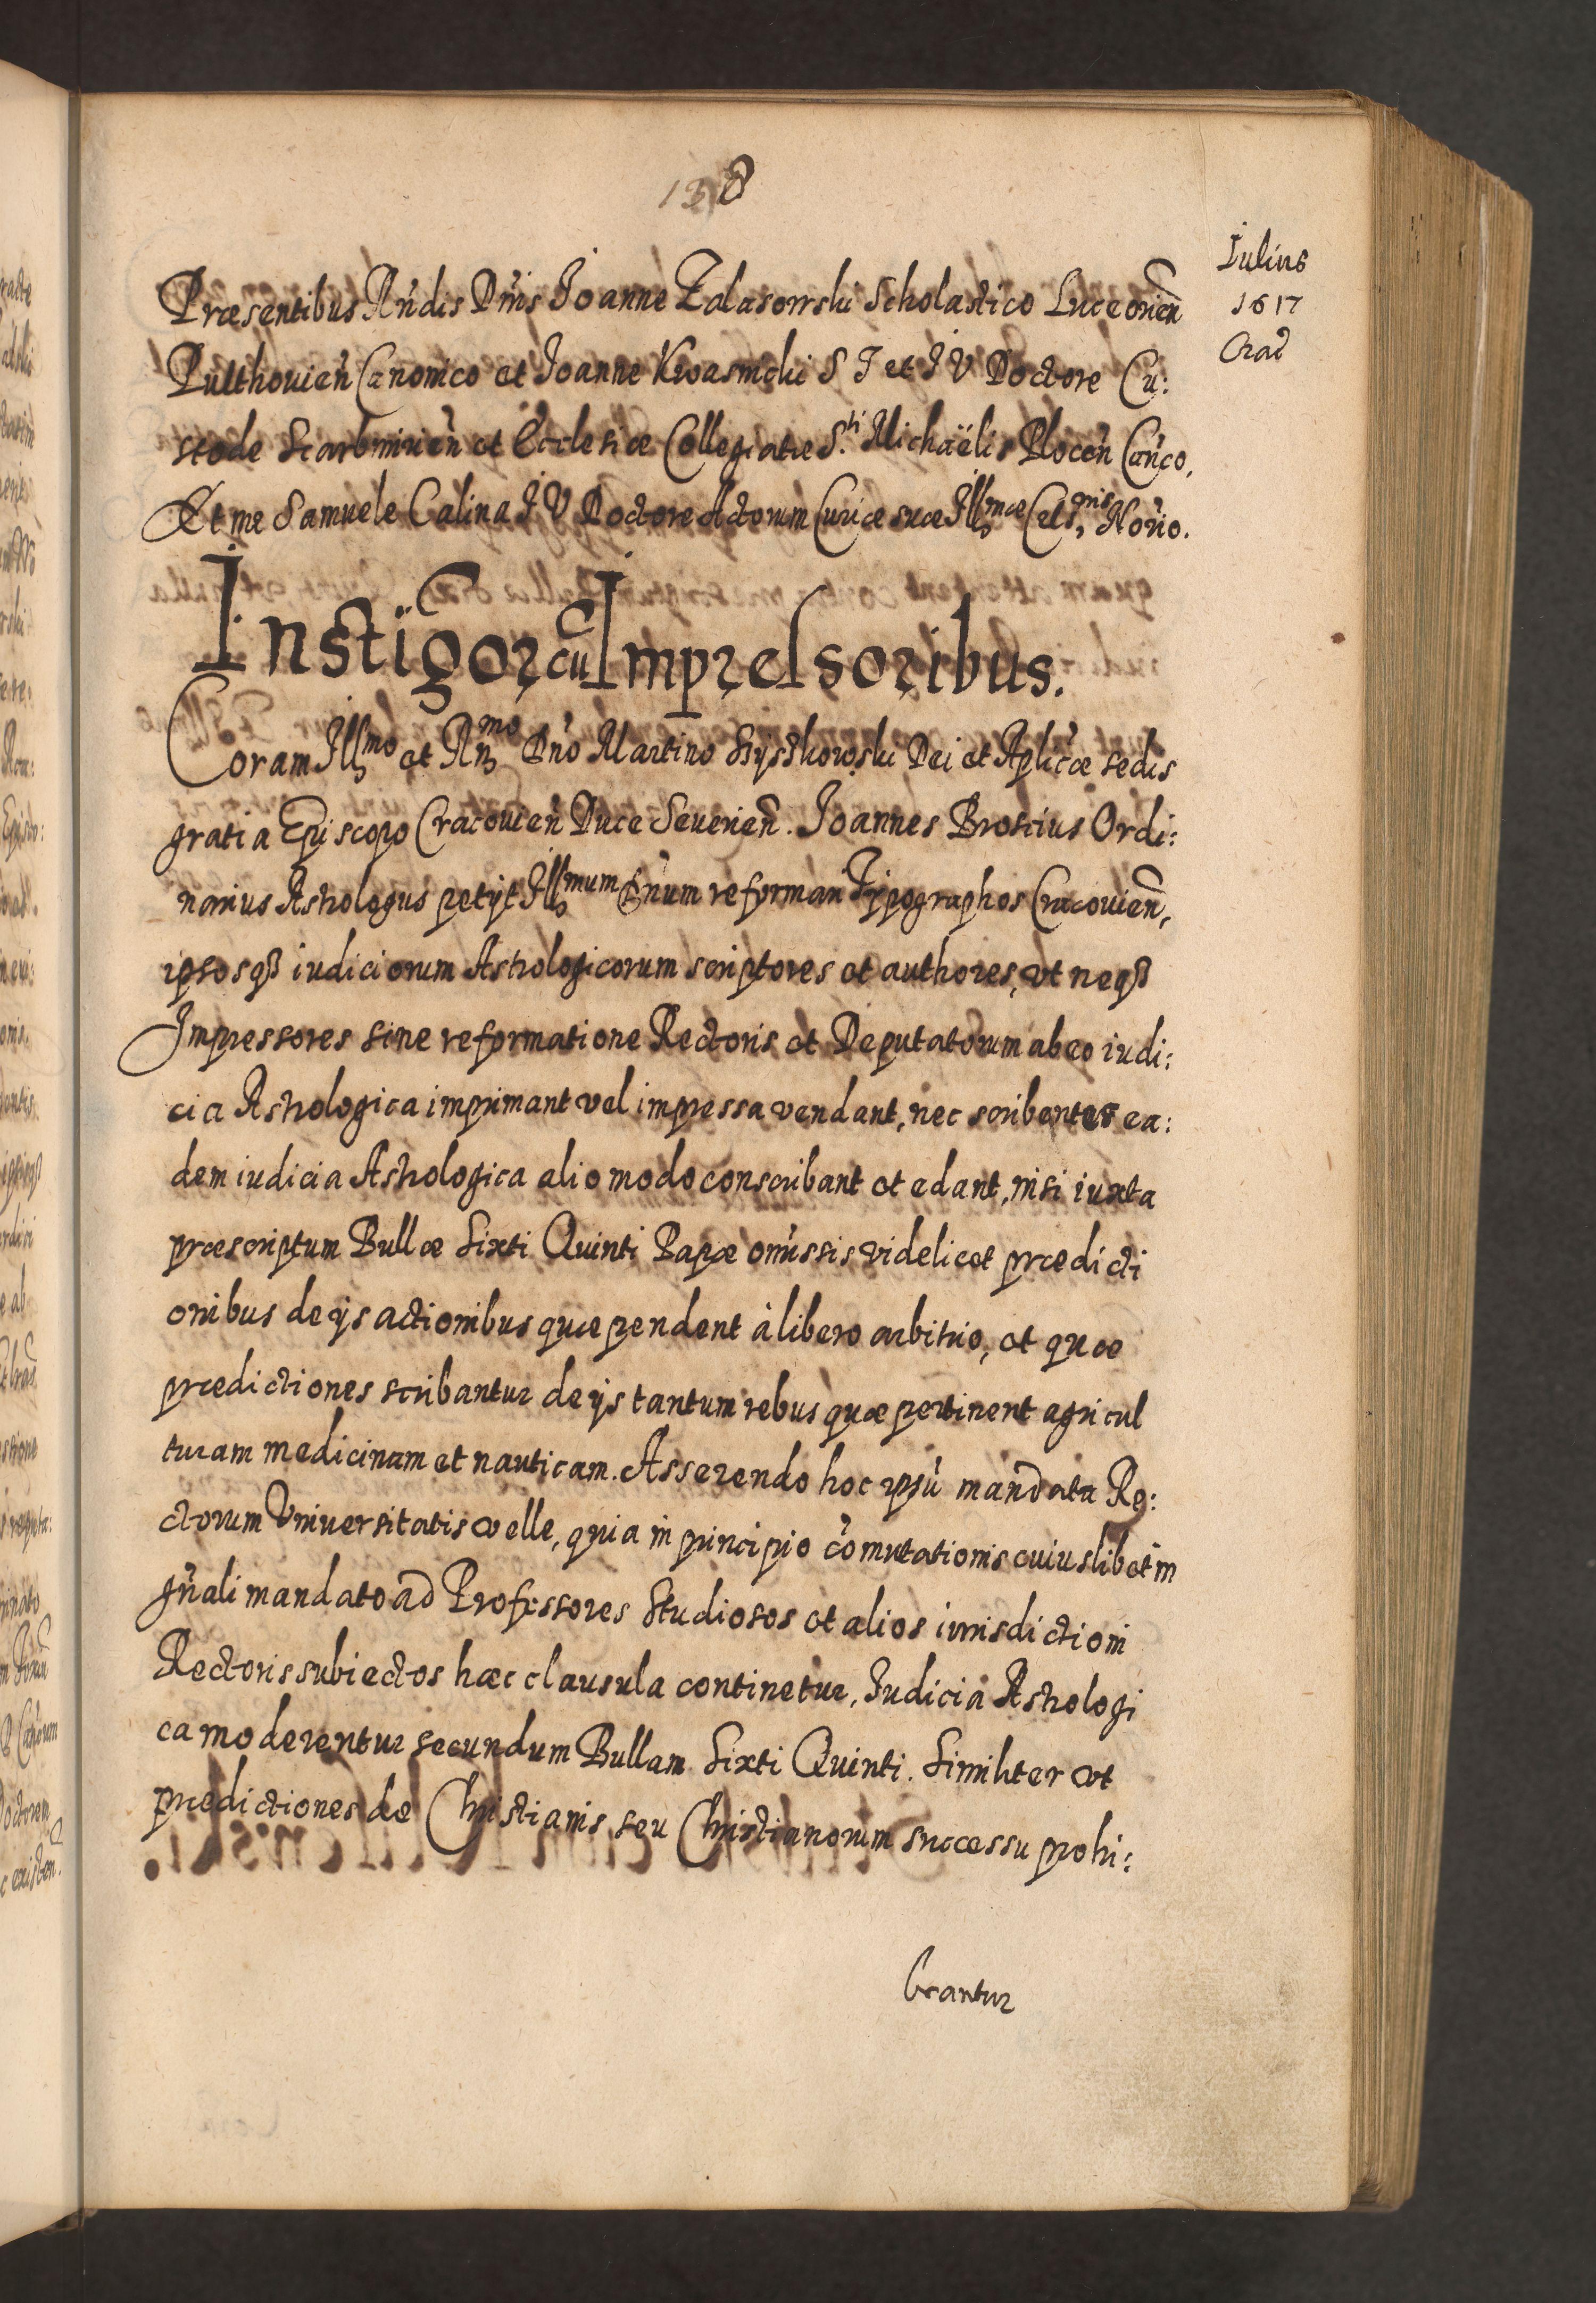 138
Iulius
1617
Crac̃
Præsentibus Rńdis Dńis Ioanne Zdlasowski Scholastico Luceorień
Pulthouień Canonico et Ioanne Kwasnicki S T et I V Doctore Cu:
stode Scarbimirień et Ecclesiæ Collegiatæ S.ti Michaëlis Plocen̄ Cańco,
Et me Samuele Calina I V Doctore Actorum Curiæ suæ Illmæ Celsnis Norio.
Instigor cū Impressoribus.
Coram Illmo et Rnmo Dńo Martino Szyszkowski Dei et Aplicæ sedis
gratia Episcopo Cracouień Duce Seuerień. Ioannes Broscius Ordi:
narius Astrologus petijt Illmum Dńum reforman Typographos Cracouień,
ipsosqß iudiciorum Astrologicorum scriptores et authores, vt neqß
Impressores sine reformatione Rectoris et Deputatorum ab eo iudi:
cia Astrologica imprimant vel impressa vendant, nec scribentes ea:
dem iudicia Astrologica alio modo conscribant et edant, nisi iuxta
præscriptum Bullæ Sixti Quinti Papæ omissis videlicet prædicti
onibus de ijs actionibus quæ pendent à libero arbitrio, et quæ
prædictiones scribantur de ijs tantum rebus quæ pertinent agricul
turam medicinam et nauticam. Asserendo hoc ipsū mandata Re:
ctorum Vniuersitatis velle, quia in principio cōmutationis cuiuslibet in
gńali mandato ad Professores Studiosos et alios iurisdictioni
Rectoris subiectos hæc clausula continetur, Iudicia Astrologi
ca moderentur secundum Bullam Sixti Quinti. Similiter vt
prædictiones de Christianis seu Christianorum successu prohi:
beantur